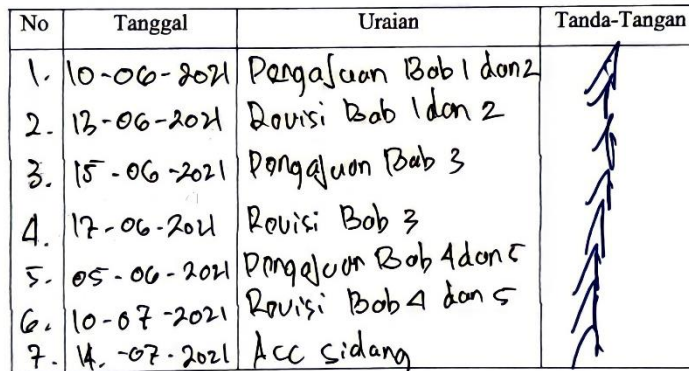 No Tanggal Uraian Tanda-Tangan
1. 10-06-2021 Pengajuan Bab 1 dan 2
2. 13-06-2021 Revisi Bab 1 dan 2
3. 15-06-2021 Pengajuan Bab 3
4. 17-06-2021 Revisi Bab 3
5. 05-06-2021 Pengajuan Bab 4 dan 5
6. 10-07-2021 Revisi Bab 4 dan 5
7. 14.-07-2021 Acc Sidang